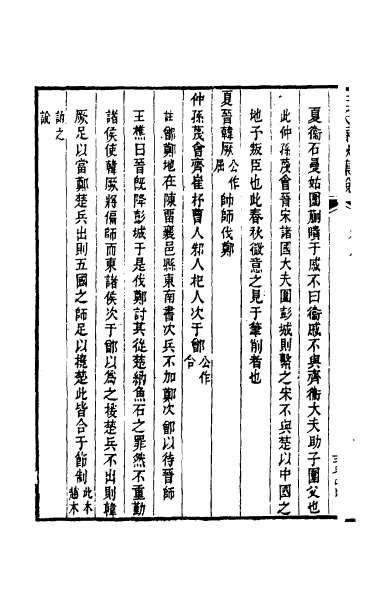 夏衛石曼姑圍蒯聵于戚不曰衛戚不與齊衛大夫助子圍父也
此仲孫蔑會晉宋諸國大夫圍彭城則繫之宋不與楚以中國之
地子叛臣也此春秋微意之見于筆削者也
夏晉韓厥公作屈帥師伐鄭
仲孫蔑會齊崔杼曹人邾人杞人次于鄫公作合
註鄫鄭地在陳留襄邑縣東南書次兵不加鄭次鄫以待晉師
王樵曰晉既降彭城于是伐鄭討其從楚納魚石之罪然不重勤
諸侯使韓厥將偏師而東諸侯次于鄫以為之援楚兵不出則韓
厥足以當鄭楚兵出則五國之師足以擾楚此皆合于節制此本趙木
訥之說